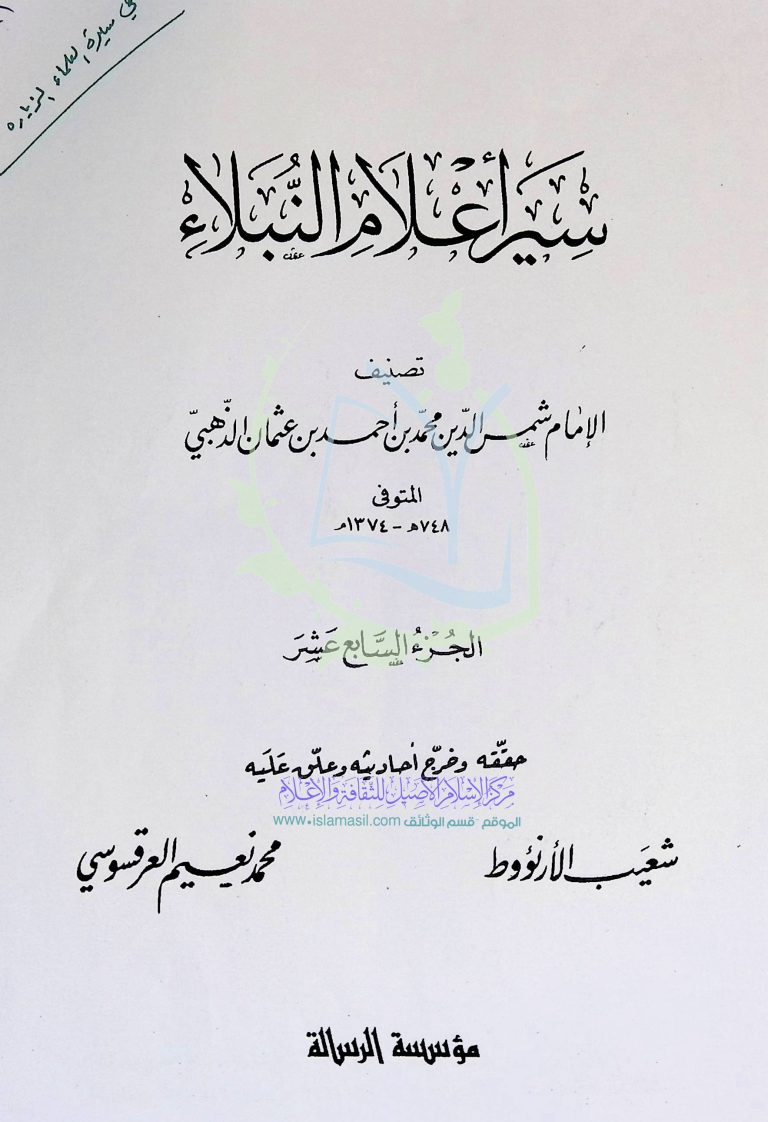 سيرة العلماء الزيارة
سِيَر أَعْلَامِ النُّبَلَاءِ
تصنيف
الإمام شمس الدّين محمّد بن أحمد بن عثمان الذّهبيّ
المتوفى
٧٤٨هـ - ١٣٧٤م
الجُزْءُ السَّابِع عَشَرَ
حقّقه وخرّج أحاديثه وعلّق عَلَيه
مركز الإسلام الأصيل للثقافة والإعلام
الموقع - قسم الوثائق www.islamasil.com
شعَيب الأرنؤوط
محمد نعيم العرقسوسي
مؤسسة الرسالة